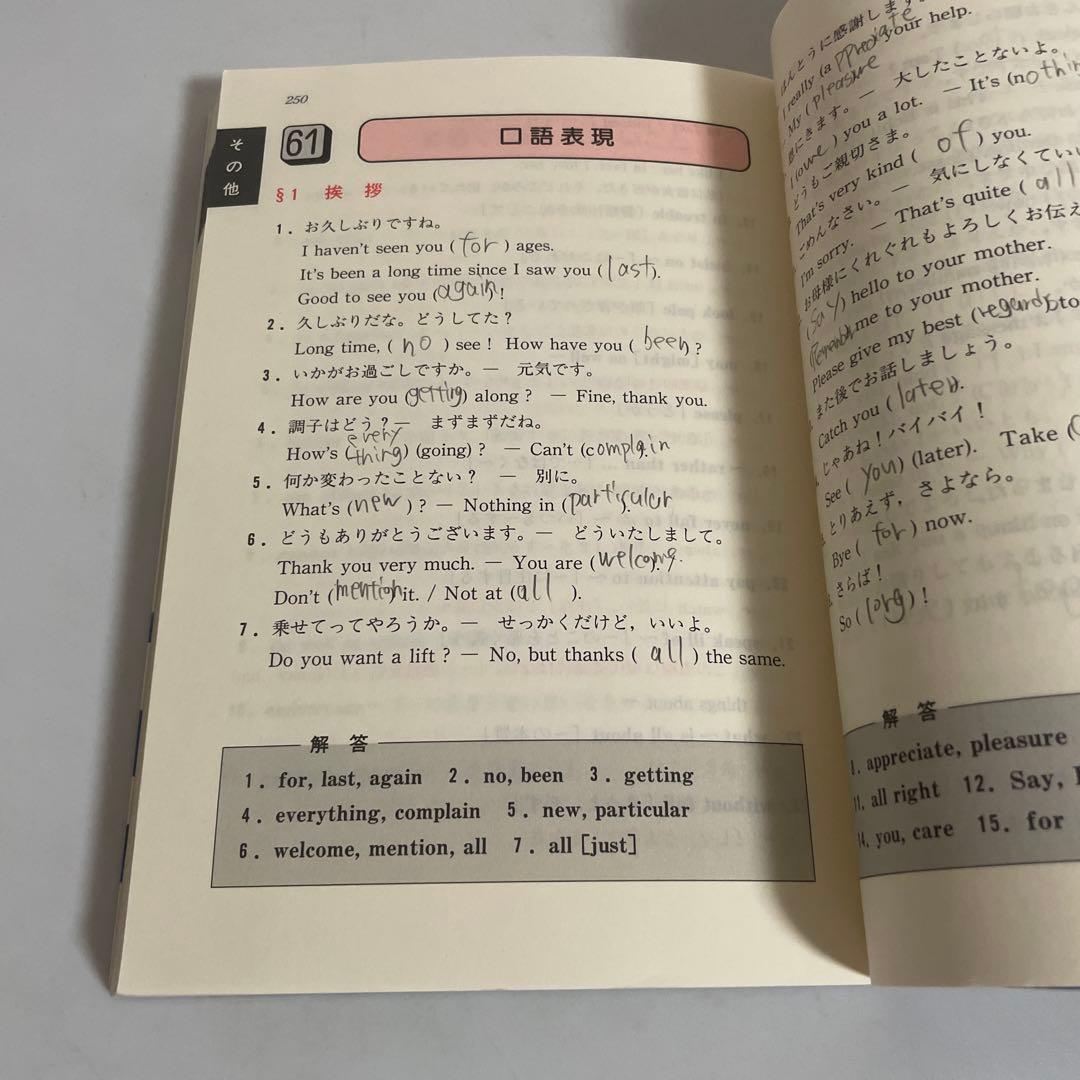 250
その他
61 口語表現
§1 挨拶
1. お久しぶりですね。
I haven't seen you ( for ) ages.
It's been a long time since I saw you ( last ).
Good to see you ( again )!
2. 久しぶりだな。どうしてた?
Long time, ( no ) see! How have you ( been )?
3. いかがお過ごしですか。— 元気です。
How are you ( getting ) along? — Fine, thank you.
4. 調子はどう?— まずまずだね。
How's ( everything ) (going)? — Can't ( complain
5. 何か変わったことない? — 別に。
What's ( new )? — Nothing in ( particular ).
6. どうもありがとうございます。— どういたしまして。
Thank you very much. — You are ( welcome ).
Don't ( mention ) it. / Not at ( all ).
7. 乗せてってやろうか。— せっかくだけど,いいよ。
Do you want a lift? — No, but thanks ( all ) the same.
解答
1. for, last, again 2. no, been 3. getting
4. everything, complain 5. new, particular
6. welcome, mention, all 7. all [just]
ほんとうに感謝します。
I really (appreciate your help.
My ( pleasure
大したことないよ。
I ( owe ) you a lot. — It's (nothin
どうもご親切さま。
That's very kind ( of ) you.
ごめんなさい。— 気にしなくてい
I'm sorry. — That's quite ( all
お母様にくれぐれもよろしくお伝え
( Say ) hello to your mother.
( Remember me to your mother.
Please give my best ( regards ) to
また後でお話しましょう。
Catch you ( later ).
じゃあね!バイバイ!
See ( you ) (later). Take (
とりあえず,さよなら。
Bye ( for ) now.
さらば!
So ( long )!
解答
appreciate, pleasure
11. all right 12. Say,
14. you, care 15. for